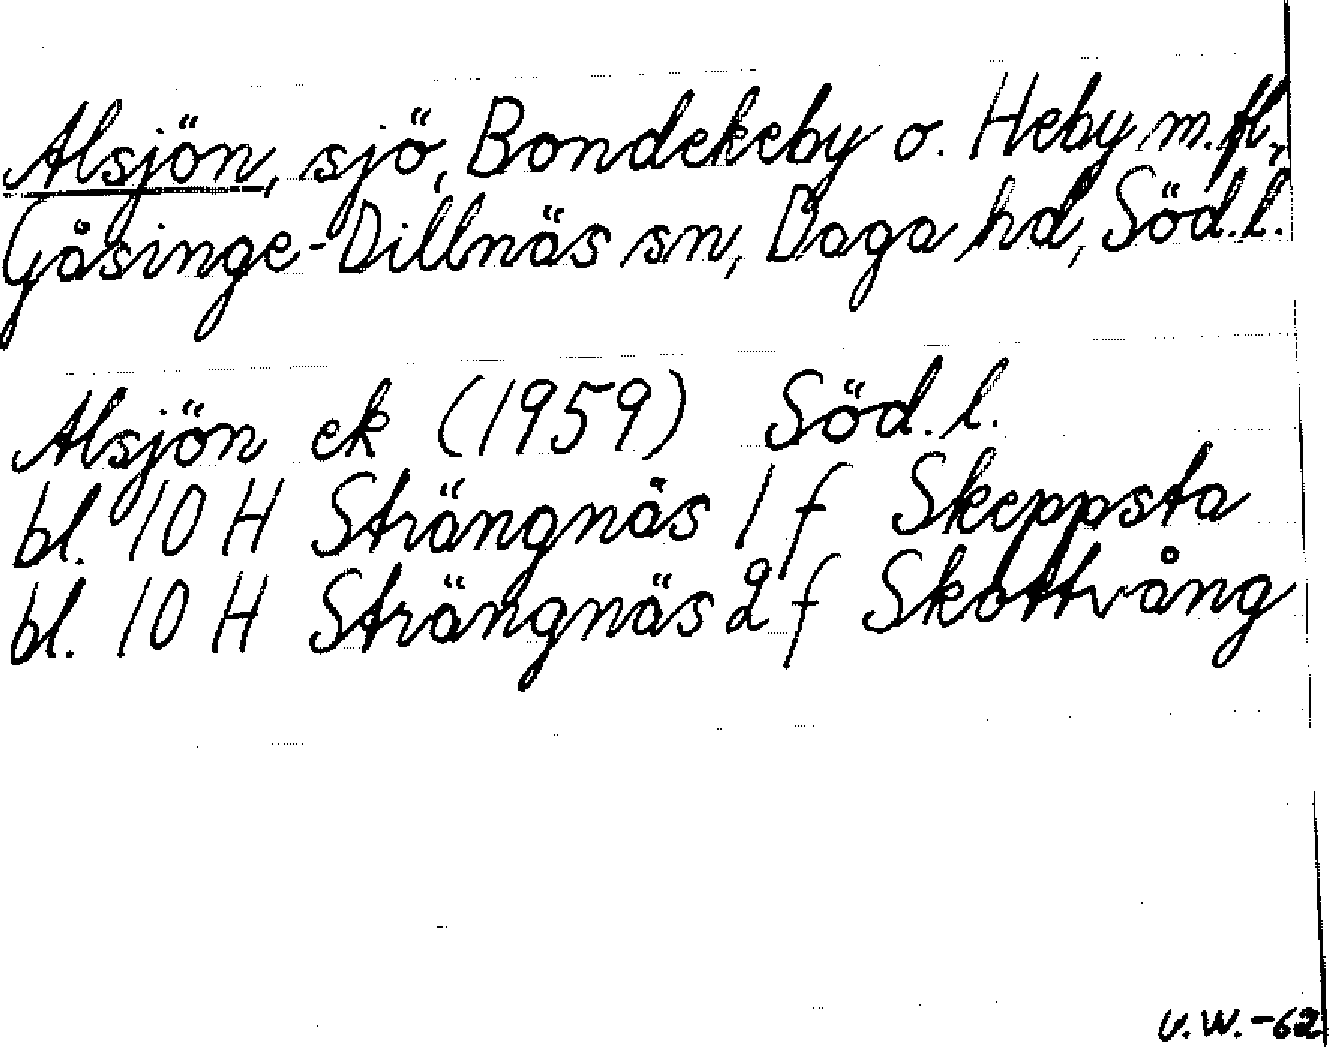 Alsjön, sjö, Bondekeby o. Heby m.fl.,
Gåsinge-Dillnäs sn, Daga hd, Söd.l.
Alsjön ek (1959) Söd.l.
bl. 10 H Strängnäs 1 f Skeppsta
bl. 10 H Strängnäs 2 f Skottvång
U.W.-62